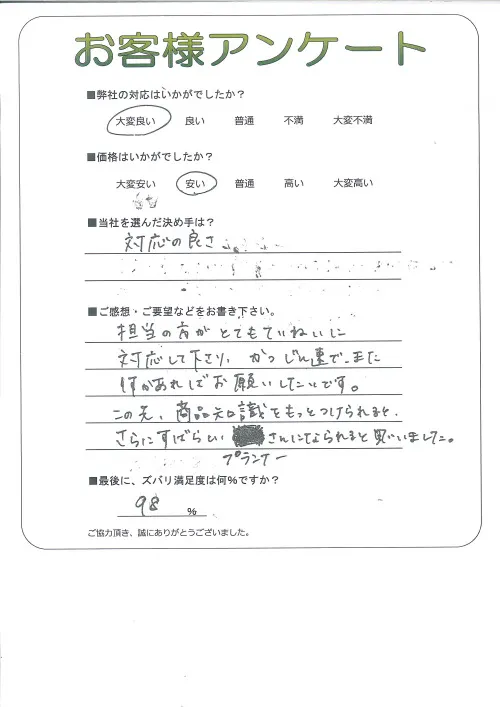 お客様アンケート
■弊社の対応はいかがでしたか?
大変良い 良い 普通 不満 大変不満
■価格はいかがでしたか?
大変安い 安い 普通 高い 大変高い
■当社を選んだ決め手は?
対応の良さ。
■ご感想・ご要望などをお書き下さい。
担当の方がとてもていねいに
対応して下さり、かつじん速で、また
何かあればお願いしたいです。
この先、商品知識をもっとつけられると、
さらにすばらしい さんになられると思いました。
プランナー
■最後に、ズバリ満足度は何%ですか?
98 %
ご協力頂き、誠にありがとうございました。